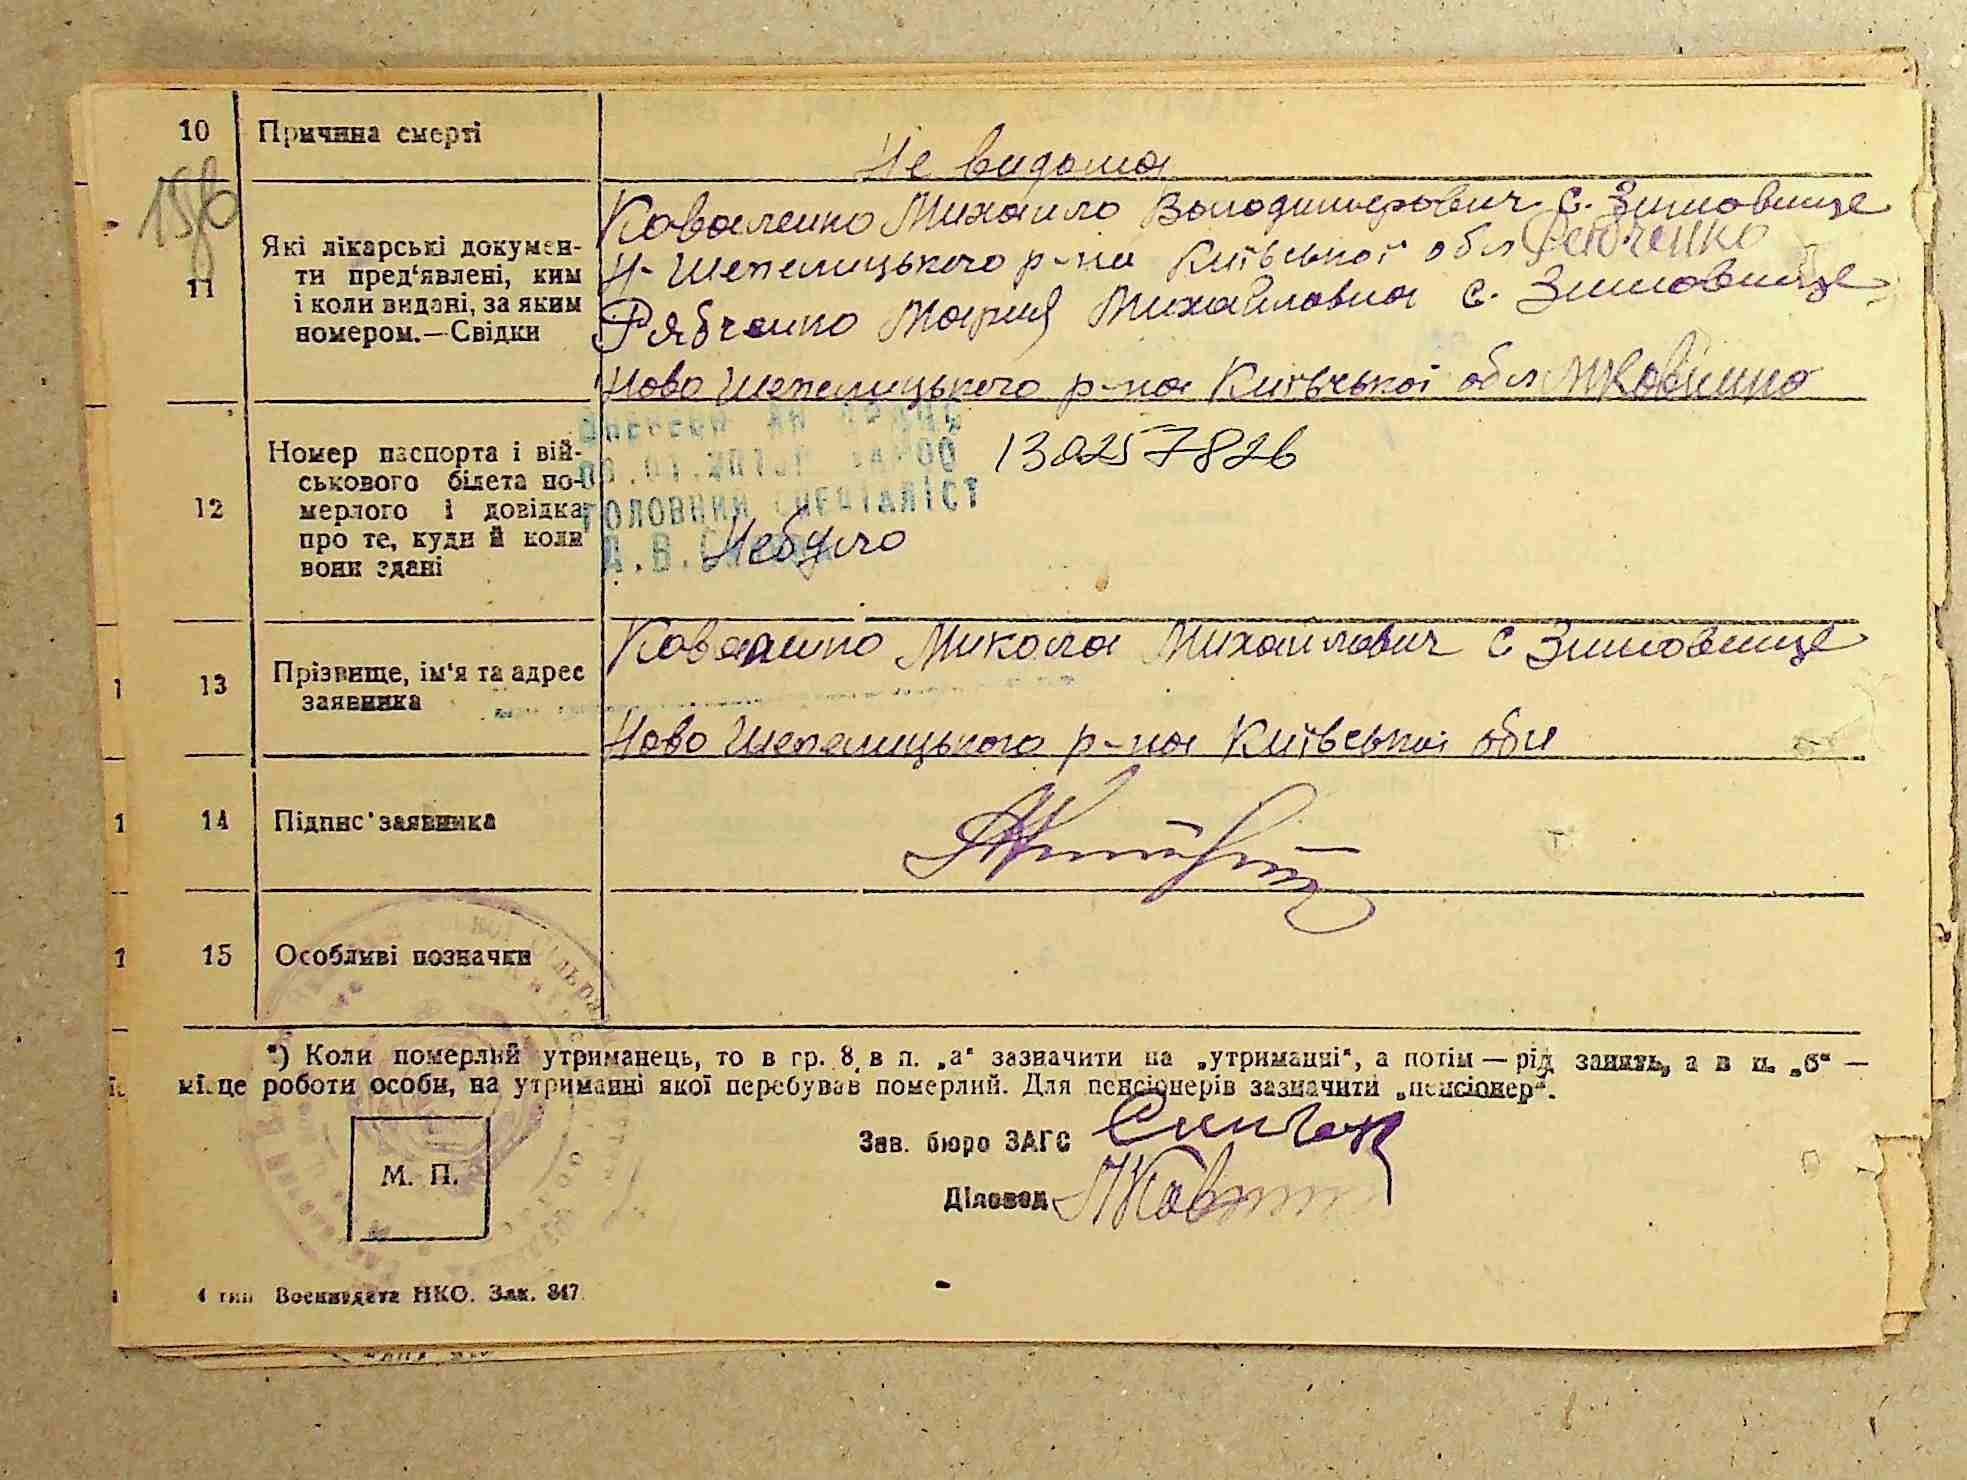 10 Причина смерті
Не видома
158
11 Які лікарські докумен-
ти пред'явлені, ким
і коли видані, за яким
номером.—Свідки
Коваленко Михаило Володимирович с. Зимовище
Н-Шепелицького р-на Київської обл Рябченко
Рябченко Мария Михайловна с. Зимовище
Ново Шепелицького р-на Київської обл
12 Номер паспорта і вій-
ськового білета по-
мерлого і довідка
про те, куди й коли
вони здані
130257826
ГОЛОВНИЙ СПЕЦІАЛІСТ
Небуло
13 Прізвище, ім'я та адрес
заявника
Коваленко Микола Михайлович с Зимовище
Ново Шепелицького р-на Київської обл
14 Підпис заявника
15 Особливі позначки
*) Коли померлий утриманець, то в гр. 8, в п. „а“ зазначити на „утриманні“, а потім — рід занять, а в п. „б“ —
місце роботи особи, на утриманні якої перебував померлий. Для пенсіонерів зазначити „пенсіонер“.
Зав. бюро ЗАГС
Діловод
М. П.
4 тип Воениздата НКО. Зак. 347